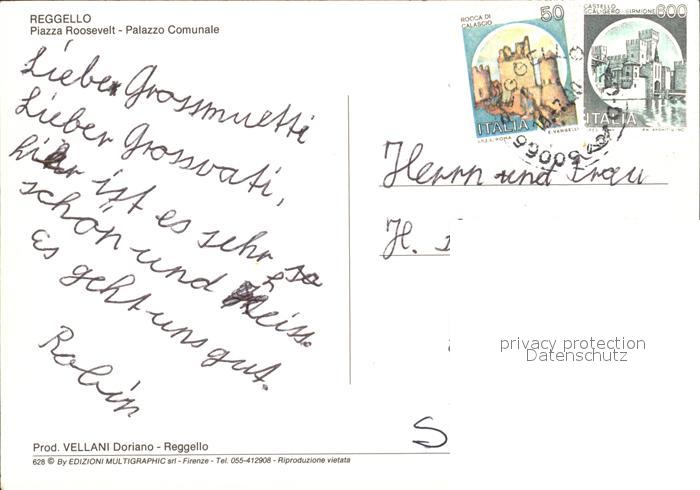 REGGELLO
Piazza Roosevelt - Palazzo Comunale
Lieber Grossmuetti
Lieber Grossvati,
hier ist es sehr
schön und heiss.
Es geht uns gut.
Robin
ROCCA DI
CALASCIO
50
ITALIA
I.P.Z.S. ROMA
E. VANGELLI
CASTELLO
SCALIGERO - SIRMIONE
600
ITALIA
50066
Herrn und Frau
H.
S
privacy protection
Datenschutz
Prod. VELLANI Doriano - Reggello
628 © By EDIZIONI MULTIGRAPHIC srl - Firenze - Tel. 055-412908 - Riproduzione vietata